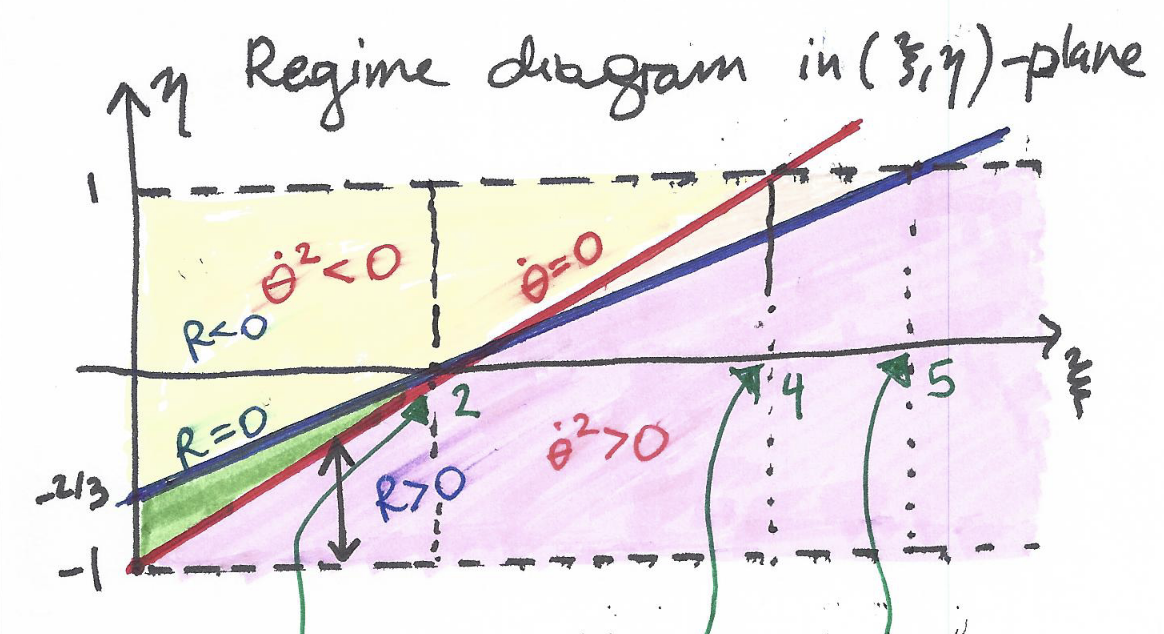 Regime diagram in (ξ,η)-plane
η
1
θ̇² < 0
θ̇=0
R<0
ξ
2
4
5
R=0
θ̇²>0
R>0
-2/3
-1